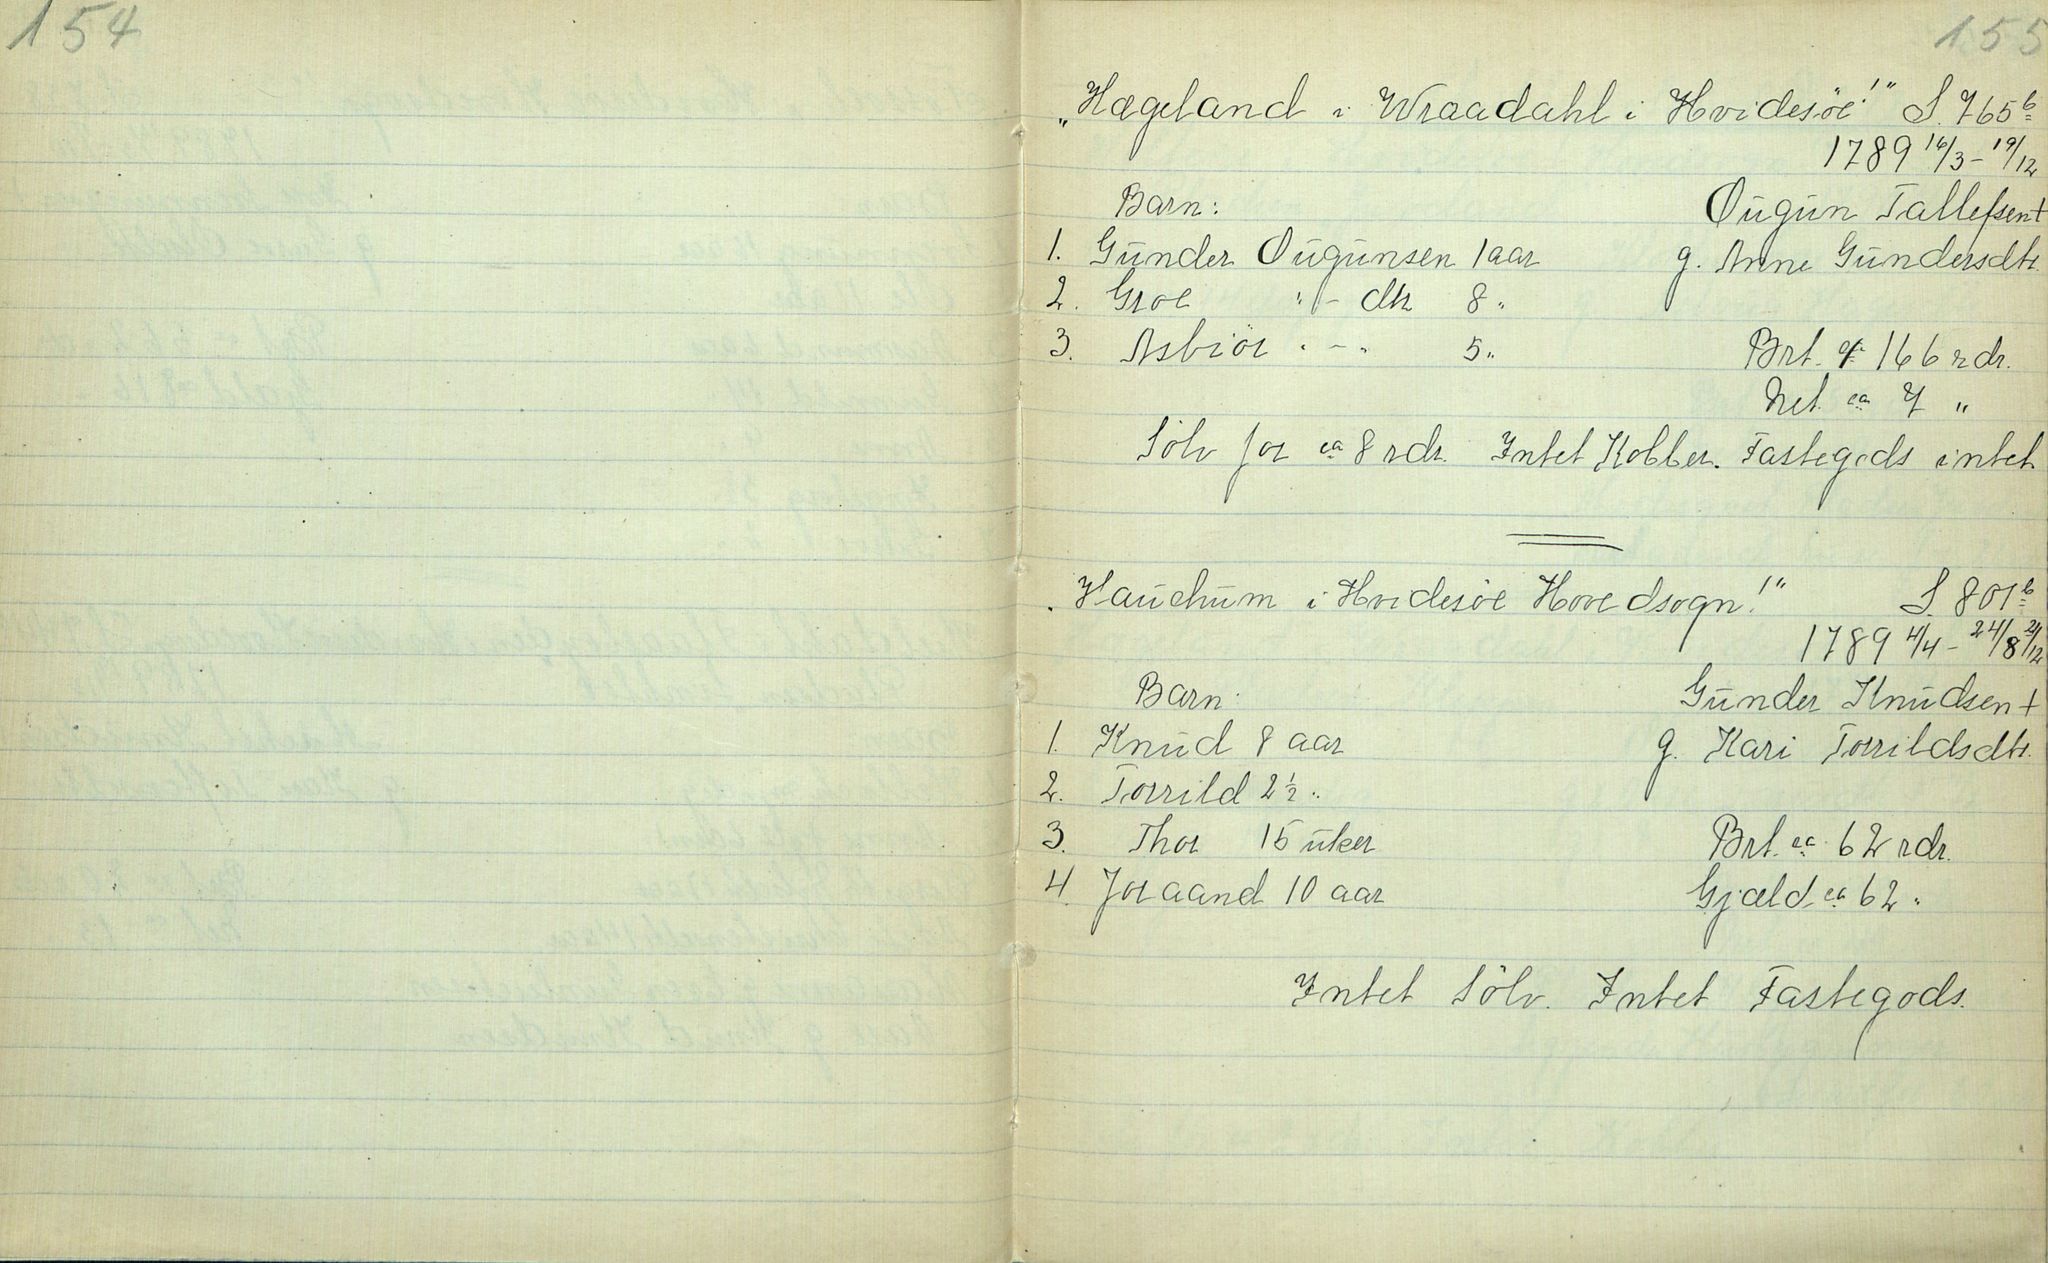 154
155
„Hægeland i Wraadahl i Hvidesöe!" S. 765 b
1789 16/3 – 19/12
Barn: Ougun Tallefsen +
1. Gunder Ougunsen 1 aar g. Anne Gundersdtr.
2. Groe " – dtr 8 "
3. Asbiör " – " 5 " Brt. ca 166 rdr.
Net. ca 7 "
Sölv for ca 8 rdr. Intet Kobber. Fastegods intet
„Hauchum i Hvidesöe Hovedsogn!" S. 801 b
1789 4/4 – 24/8 21/12
Barn Gunder Knudsen +
1. Knud 8 aar g. Kari Torrildsdtr.
2. Torrild 2 1/2 "
3. Thor 15 uker Brt. ca 62 rdr.
4. Joraand 10 aar Gjæld ca 62 "
Intet Sölv. Intet Fastegods.